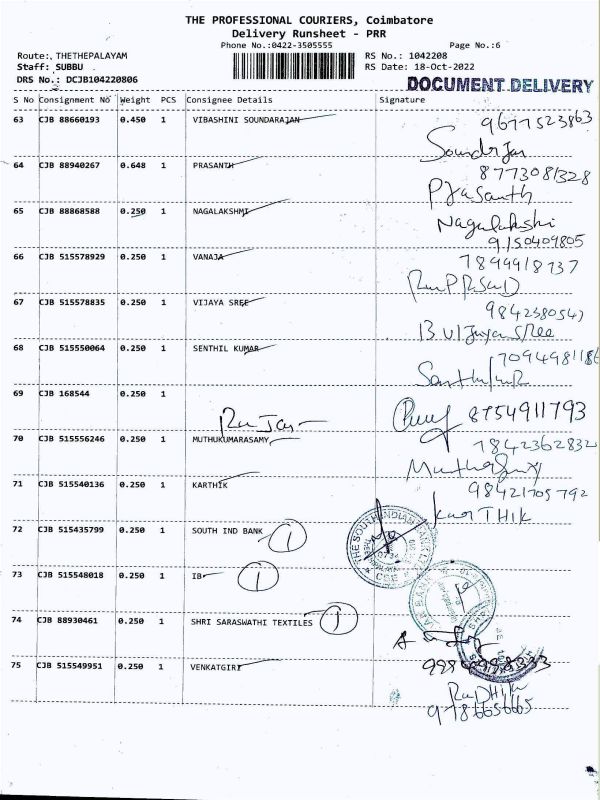 THE PROFESSIONAL COURIERS, Coimbatore
Delivery Runsheet - PRR
Phone No.:0422-3505555 Page No.:6
Route:, THETHEPALAYAM RS No.: 1042208
Staff: SUBBU RS Date: 18-Oct-2022
DRS No.: DCJB104220806
DOCUMENT DELIVERY
S No Consignment No Weight PCS Consignee Details Signature
63 CJB 88660193 0.450 1 VIBASHINI SOUNDARAJAN 9677523863
64 CJB 88940267 0.648 1 PRASANTH 8773081328
Prasanth
65 CJB 88868588 0.250 1 NAGALAKSHMI Nagalakshi
9150409805
66 CJB 515578929 0.250 1 VANAJA 7899918737
67 CJB 515578835 0.250 1 VIJAYA SREE 9842380547
B Vijaya Sree
68 CJB 515550064 0.250 1 SENTHIL KUMAR 7094981186
69 CJB 168544 0.250 1
8754911793
70 CJB 515556246 0.250 1 MUTHUKUMARASAMY 7842362832
71 CJB 515540136 0.250 1 KARTHIK 98421705792
KarTHIK
72 CJB 515435799 0.250 1 SOUTH IND BANK 1
THE SOUTH INDIAN BANK
CBE
73 CJB 515548018 0.250 1 IB 1
74 CJB 88930461 0.250 1 SHRI SARASWATHI TEXTILES 1
75 CJB 515549951 0.250 1 VENKATGIRI
RaDHIka
9786656665